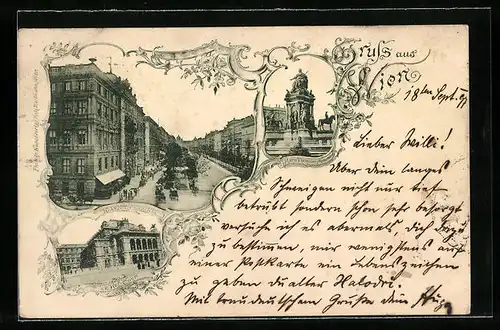 Gruss aus
Wien
18ten Sept. 97
Lieber Willi!
Über dein langes
Schweigen nicht nur tief
betrübt sondern schon sehr besorgt
versuche ich es abermals, dich dazu
zu bestimmen, mir wenigstens auf
einer Postkarte ein Lebenszeichen
zu geben du alter Halodri.
Mit treudeutschem Gruße dein Hugo